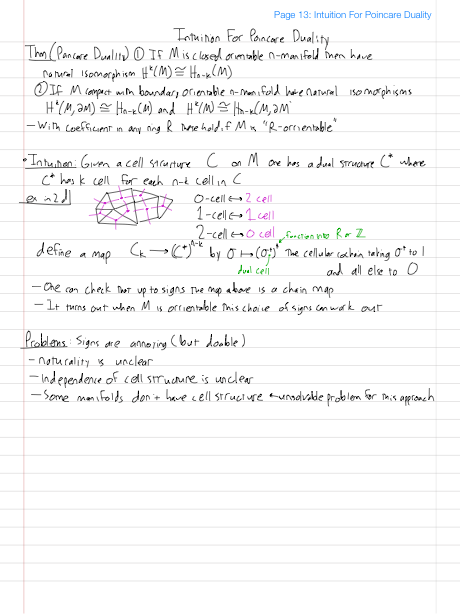 Page 13: Intuition For Poincare Duality
Intuition For Poncare Duality
Thm (Poncare Duality) ① If M is closed orientable n-manifold then have
natural isomorphism H^k(M) ≅ H_{n-k}(M)
② If M compact with boundary, orientable n-manifold have natural isomorphisms
H^k(M, ∂M) ≅ H_{n-k}(M) and H^k(M) ≅ H_{n-k}(M, ∂M)
- With coefficient in any ring R these hold if M is "R-orrientable"
• Intuition: Given a cell structure C on M one has a dual structure C* where
C* has k cell for each n-k cell in C
ex in 2d
0-cell ↔ 2 cell
1-cell ↔ 1 cell
2-cell ↔ 0 cell
function into R or ℤ
define a map C_k → (C*)^{n-k} by σ ↦ (σ*)* the cellular cochain taking σ* to 1
dual cell
and all else to 0
- One can check that up to signs the map above is a chain map
- It turns out when M is orrientable this choice of signs can work out
Problems: Signs are annoying (but doable)
- naturality is unclear
- Independence of cell structure is unclear
- Some manifolds don't have cell structure ← unsolvable problem for this approach